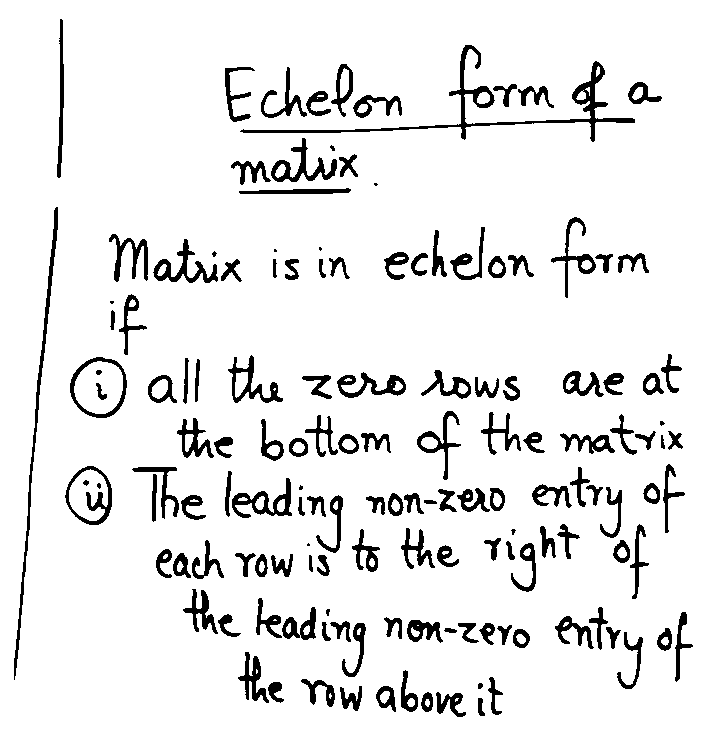 Echelon form of a
matrix.
Matrix is in echelon form
if
(i) all the zero rows are at
the bottom of the matrix
(ii) The leading non-zero entry of
each row is to the right of
the leading non-zero entry of
the row above it